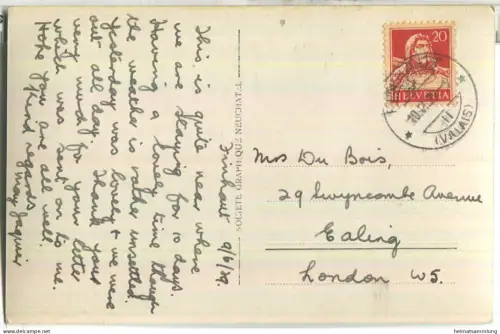 Finhaut
9/6/29.
This is quite near where
we are staying for 10 days.
Having a lovely time though
the weather is rather unsettled.
Yesterday was lovely & we were
out all day. Thank you
very much for your letter
which was sent on to me.
Hope you are all well.
Kind regards
May
SOCIÉTÉ GRAPHIQUE NEUCHATEL
20
HELVETIA
(VALAIS)
Mrs Du Bois,
29 Gwyncombe Avenue
Ealing
London W5.
www.delcampe.net
heimatsammlung.com